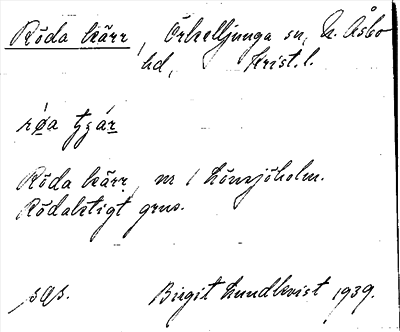 Röda kärr, Örkelljunga sn, N. Åsbo
hd, Krist. l.
Röda kärr, m 1 Lönsjöholm.
Rödaktigt grus.
Birgit Lundkvist 1939.